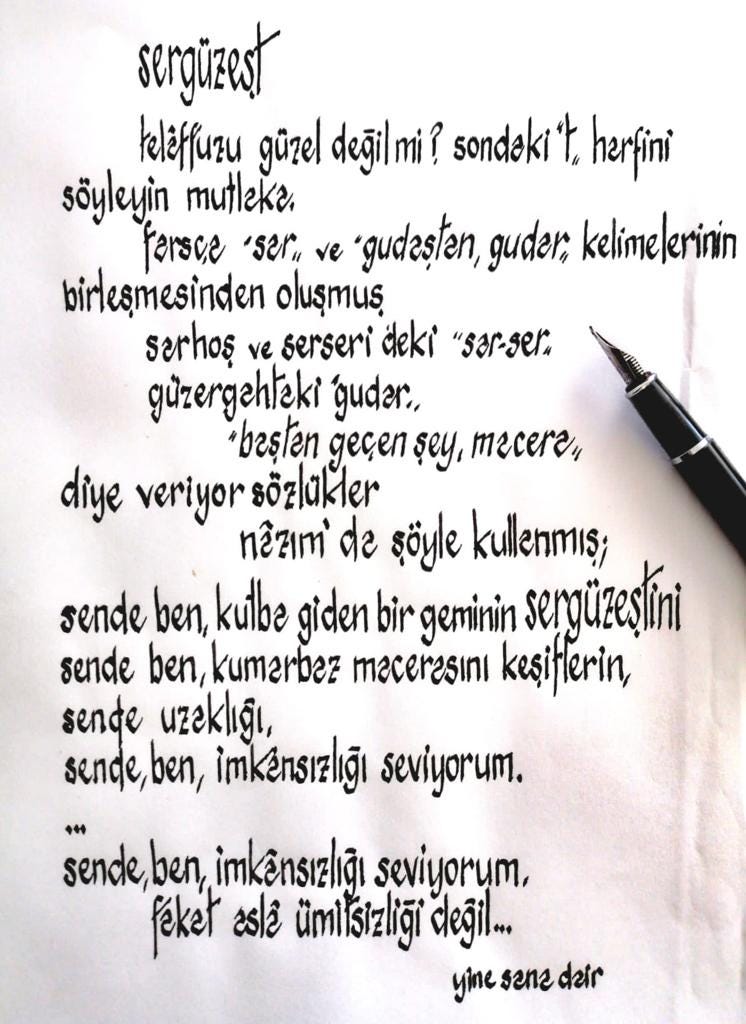 sergüzeşt
telâffuzu güzel değil mi? sondaki "t„ harfini
söyleyin mutlaka.
farsça "sar„ ve "gudaştan, gudar„ kelimelerinin
birleşmesinden oluşmuş
sarhoş ve serseri'deki "sar-ser„
güzergahtaki "gudar„
"baştan geçen şey, macera„
diye veriyor sözlükler
nâzım'da şöyle kullanmış;
sende ben, kutba giden bir geminin sergüzeştini
sende ben, kumarbaz macerasını keşiflerin,
sende uzaklığı,
sende, ben, imkânsızlığı seviyorum.
...
sende, ben, imkânsızlığı seviyorum.
fakat aslâ ümitsizliği değil...
yine sana dair